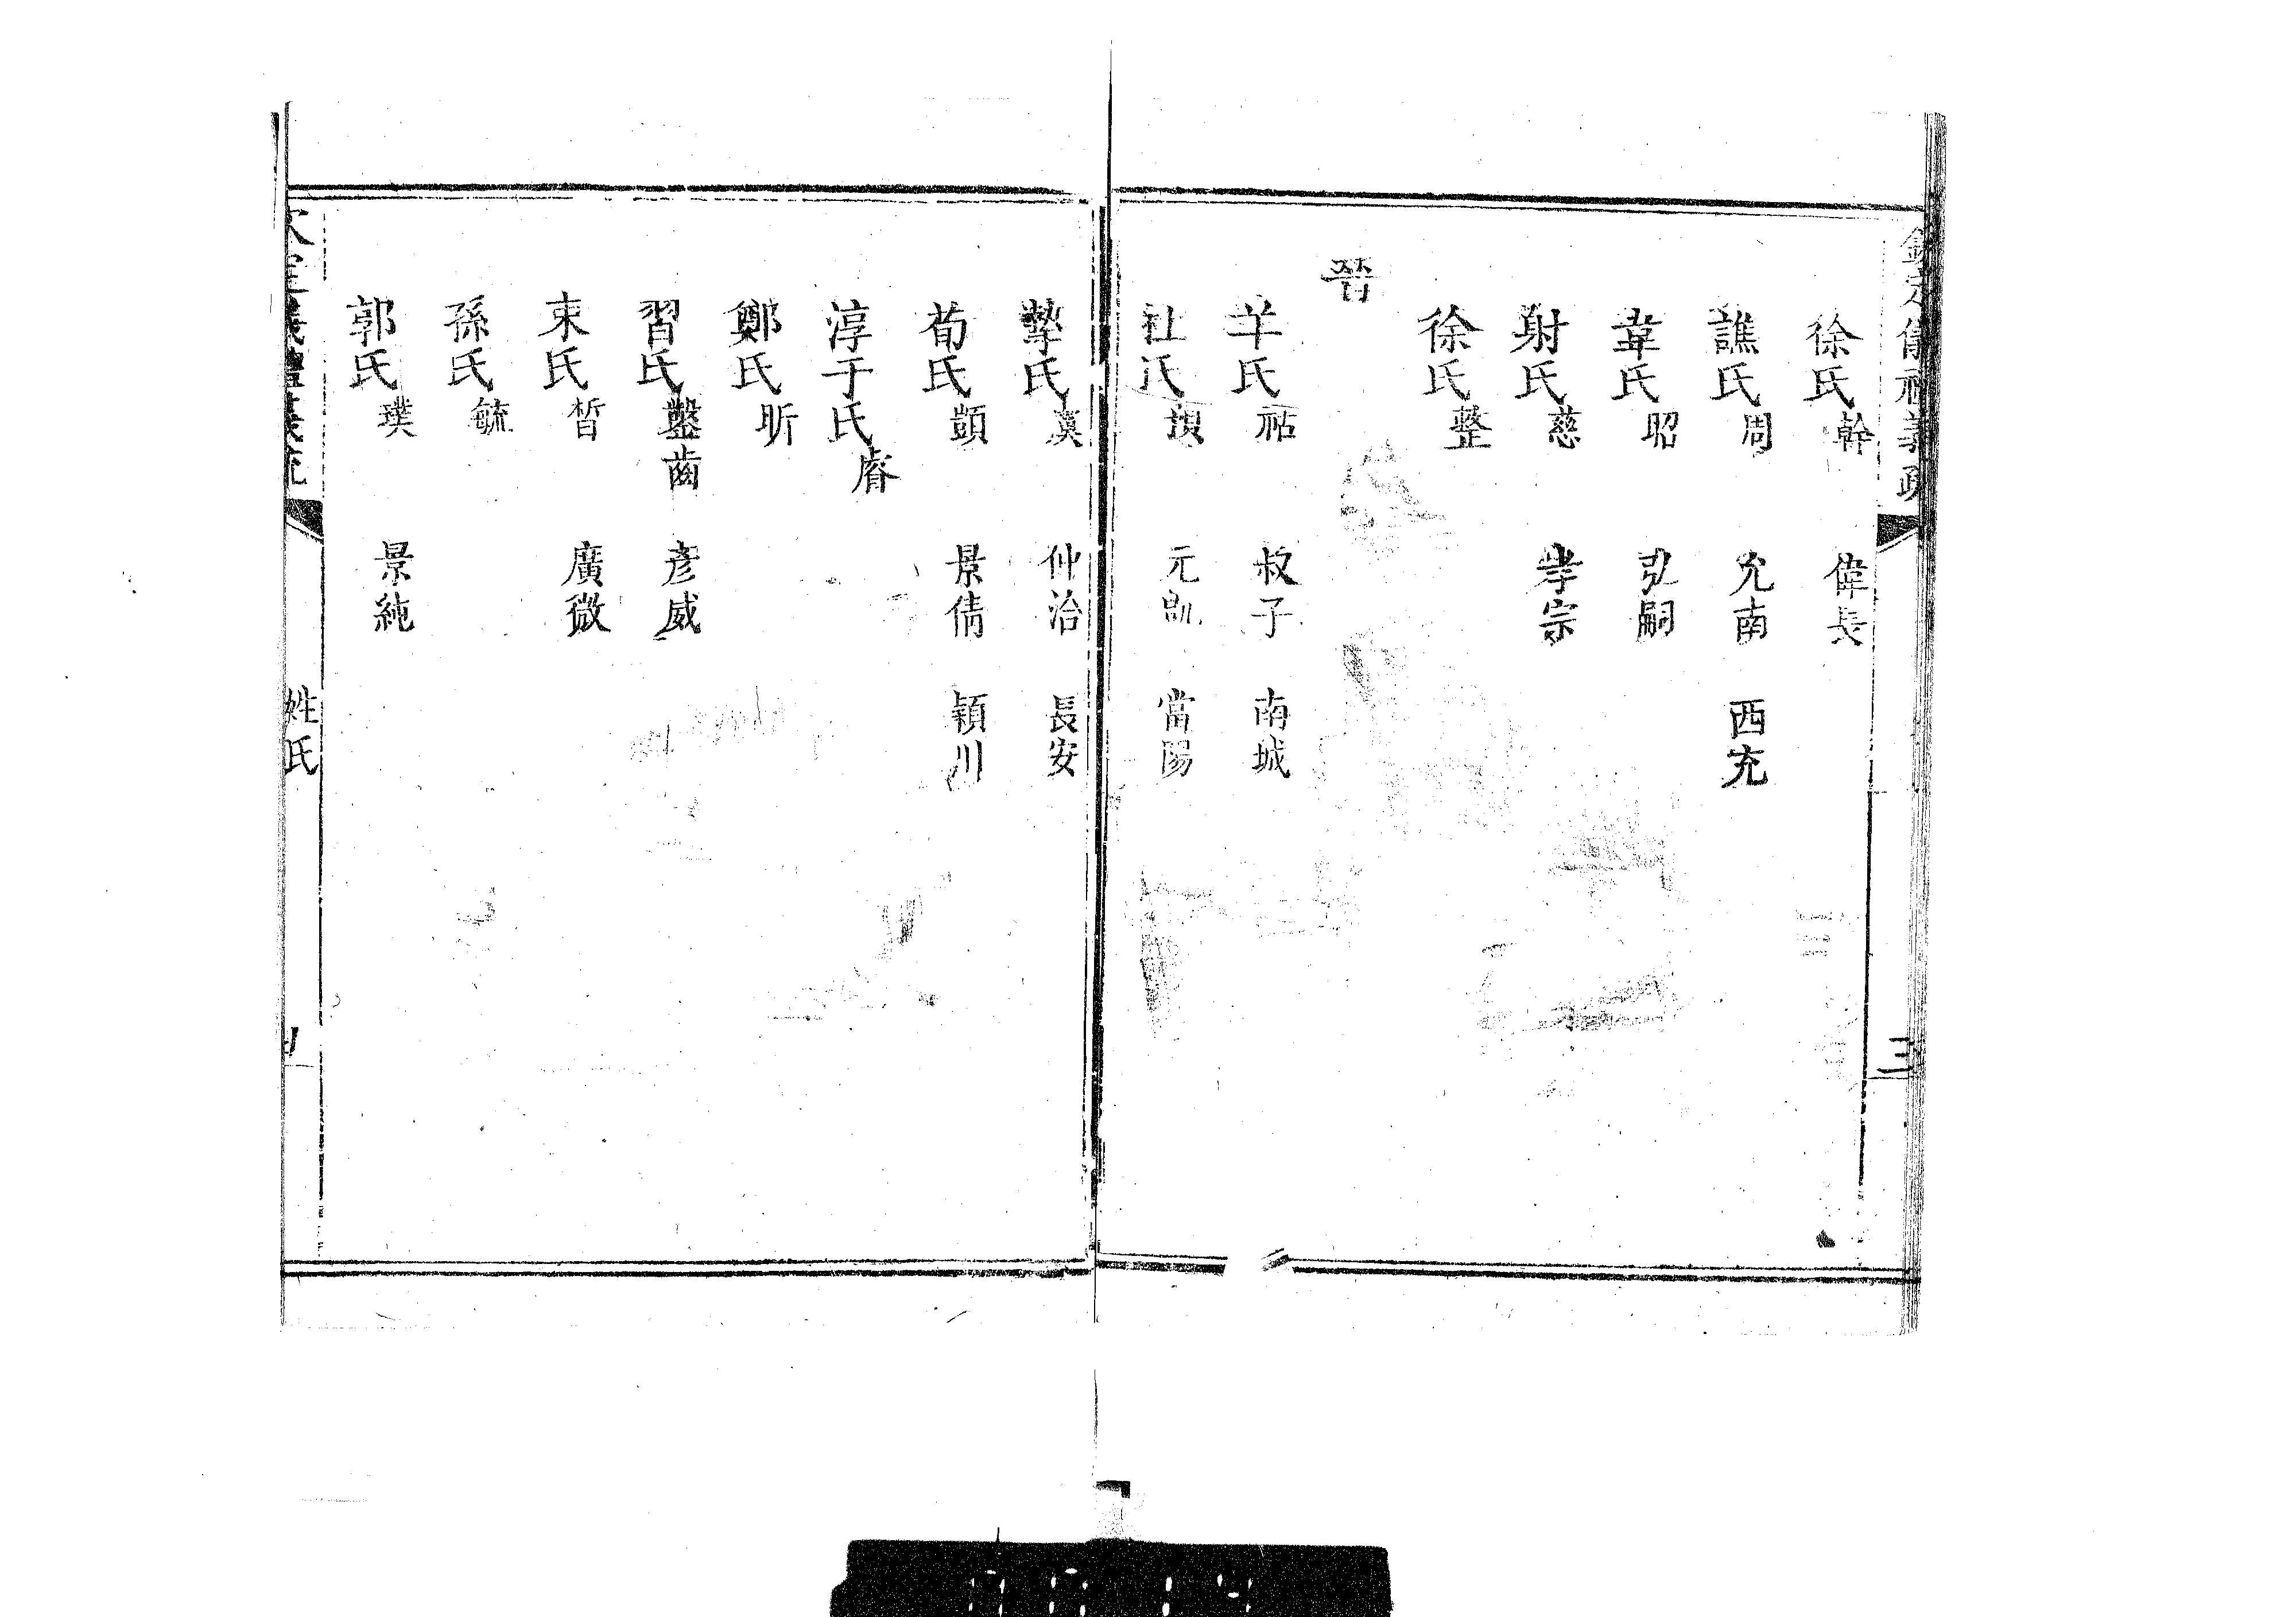 欽定儀禮義疏 三
徐氏幹 偉長
譙氏周 允南 西充
韋氏昭 弘嗣
射氏慈 孝宗
徐氏整
晉
羊氏祜 叔子 南城
杜氏預 元凱 當陽
摯氏虞 仲洽 長安
荀氏顗 景倩 潁川
淳于氏睿
鄭氏昕
習氏鑿齒 彥威
束氏皙 廣微
孫氏毓
郭氏璞 景純
欽定儀禮義疏 姓氏